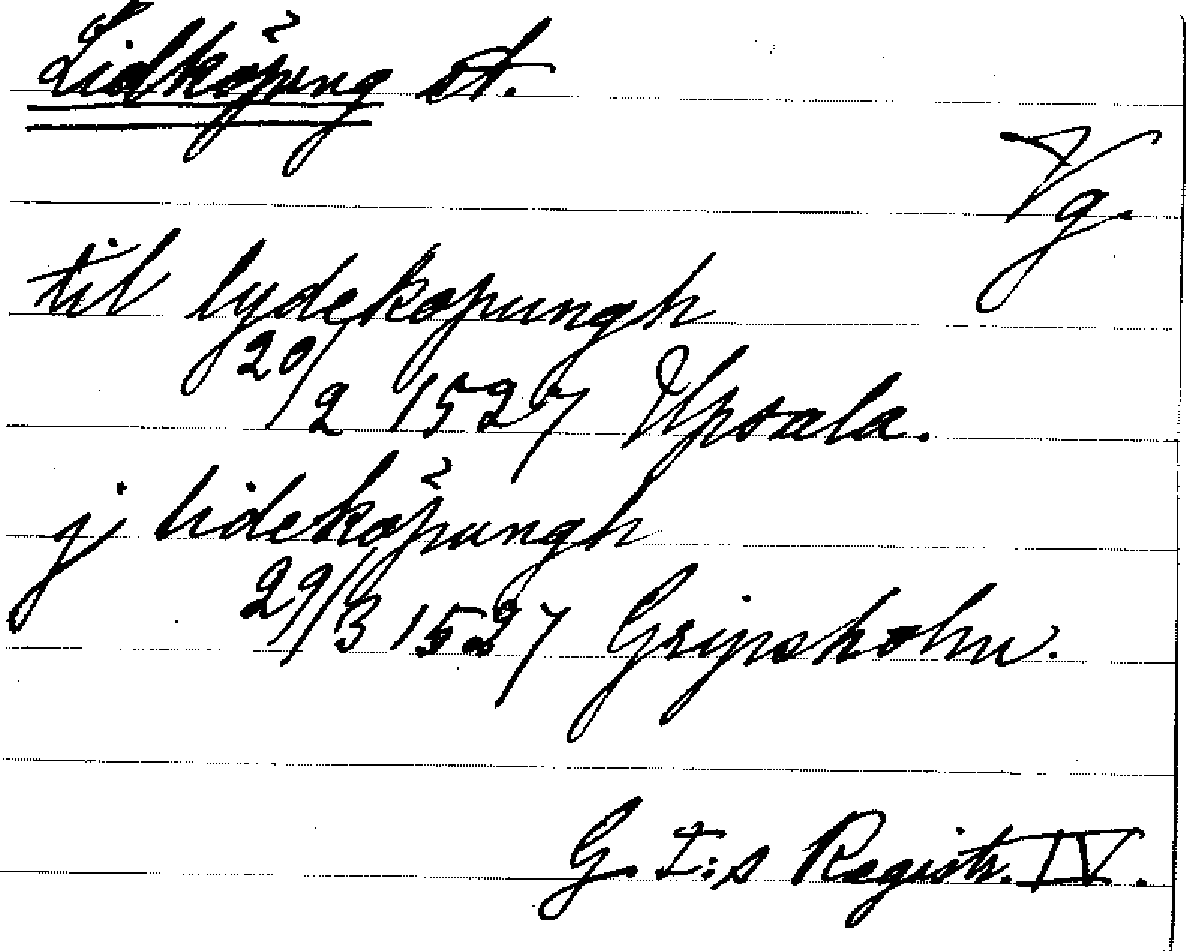 Lidköping st.
Vg.
til lydekøpungh
20/2 1527 Upsala.
j lideköpungh
29/3 1527 Gripsholm.
G. I:s Registr. IV.